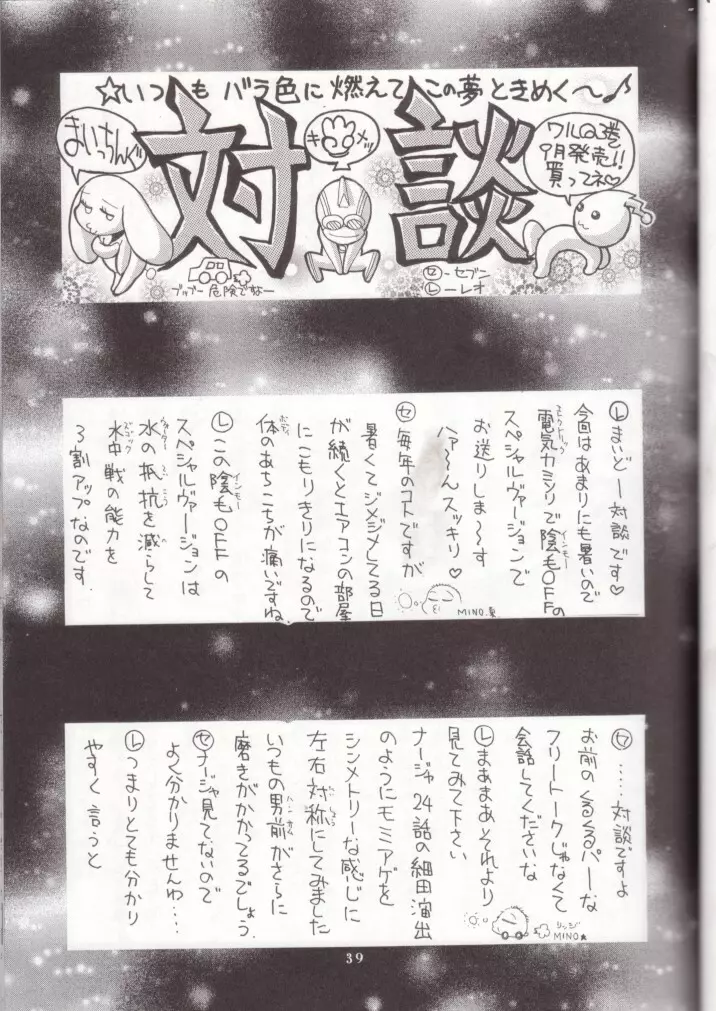 ☆いつもバラ色に燃えてこの夢ときめく〜♪
まいっちんぐ
対談
キメッ
ワルQ3巻
9月発売!!
買ってネ♡
ブッブー危険でなー
セ-セブー
レ-レオ
レ まいどー対談です♡
今回はあまりにも暑いので
電気カミソリで陰毛OFFの
インモー
スペシャルヴァージョンで
お送りしま〜す
ハァ〜んスッキリ♡
セ 毎年のコトですが
暑くてジメジメしてる日
が続くとエアコンの部屋
にこもりきりになるので
体のあちこちが痛いですね.
ボディ
レ この陰毛OFFの
インモー
スペシャルヴァージョンは
水の抵抗を減らして
水中戦の能力を
3割アップなのです.
MINO.
セ ……対談ですよ
お前のくるくるパーな
フリートークじゃなくて
会話してくださいな
レ まあまあそれより
見てみて下さい
ナージャ24話の細田演出
のようにモミアゲを
シンメトリーな感じに
左右対称にしてみました
いつもの男前がさらに
磨きがかかってるでしょう.
セ ナージャ見てないので
よく分かりませんわ….
レ つまりとても分かり
やすく言うと
MINO★
39